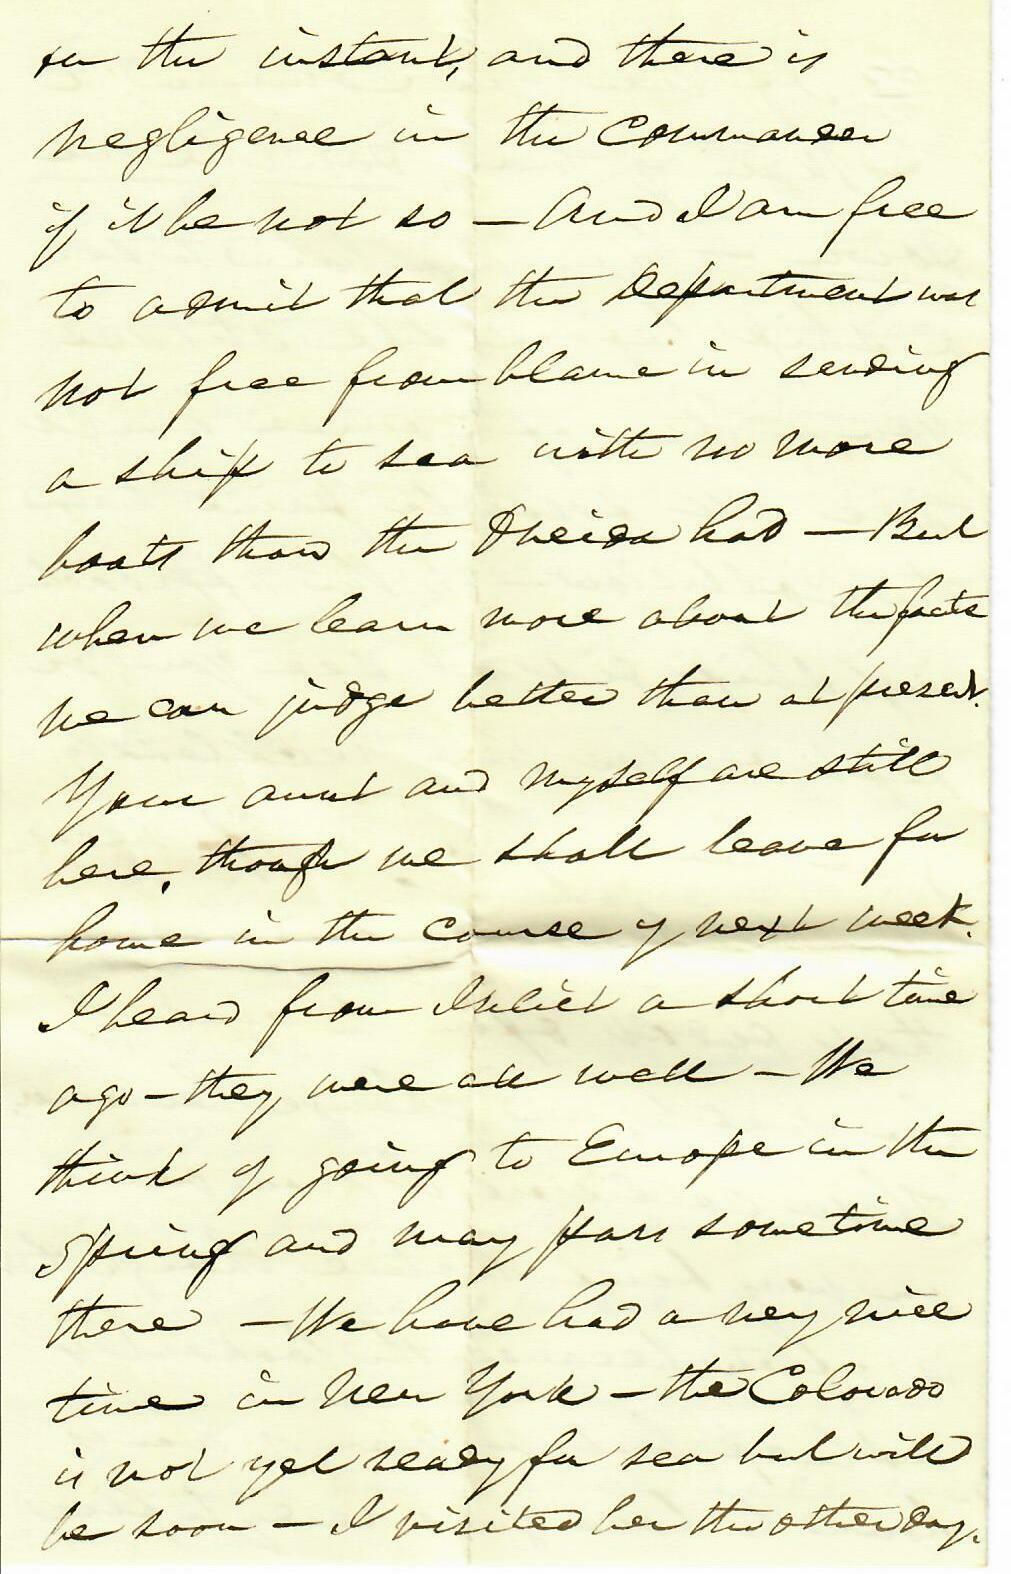 on the instant, and there is
negligence in the Commander
if it be not so — And I am free
to admit that the Department was
not free from blame in sending
a ship to sea with no more
boats than the Oneida had — But
when we learn more about the facts
we can judge better than at present.
Your aunt and myself are still
here, though we shall leave for
home in the course of next week.
I heard from a short time
ago — they were all well — We
think of going to Europe in the
Spring and may pass sometime
there — We have had a very nice
time in New York — the Colorado
is not yet ready for sea but will
be soon — I visited her the other day.